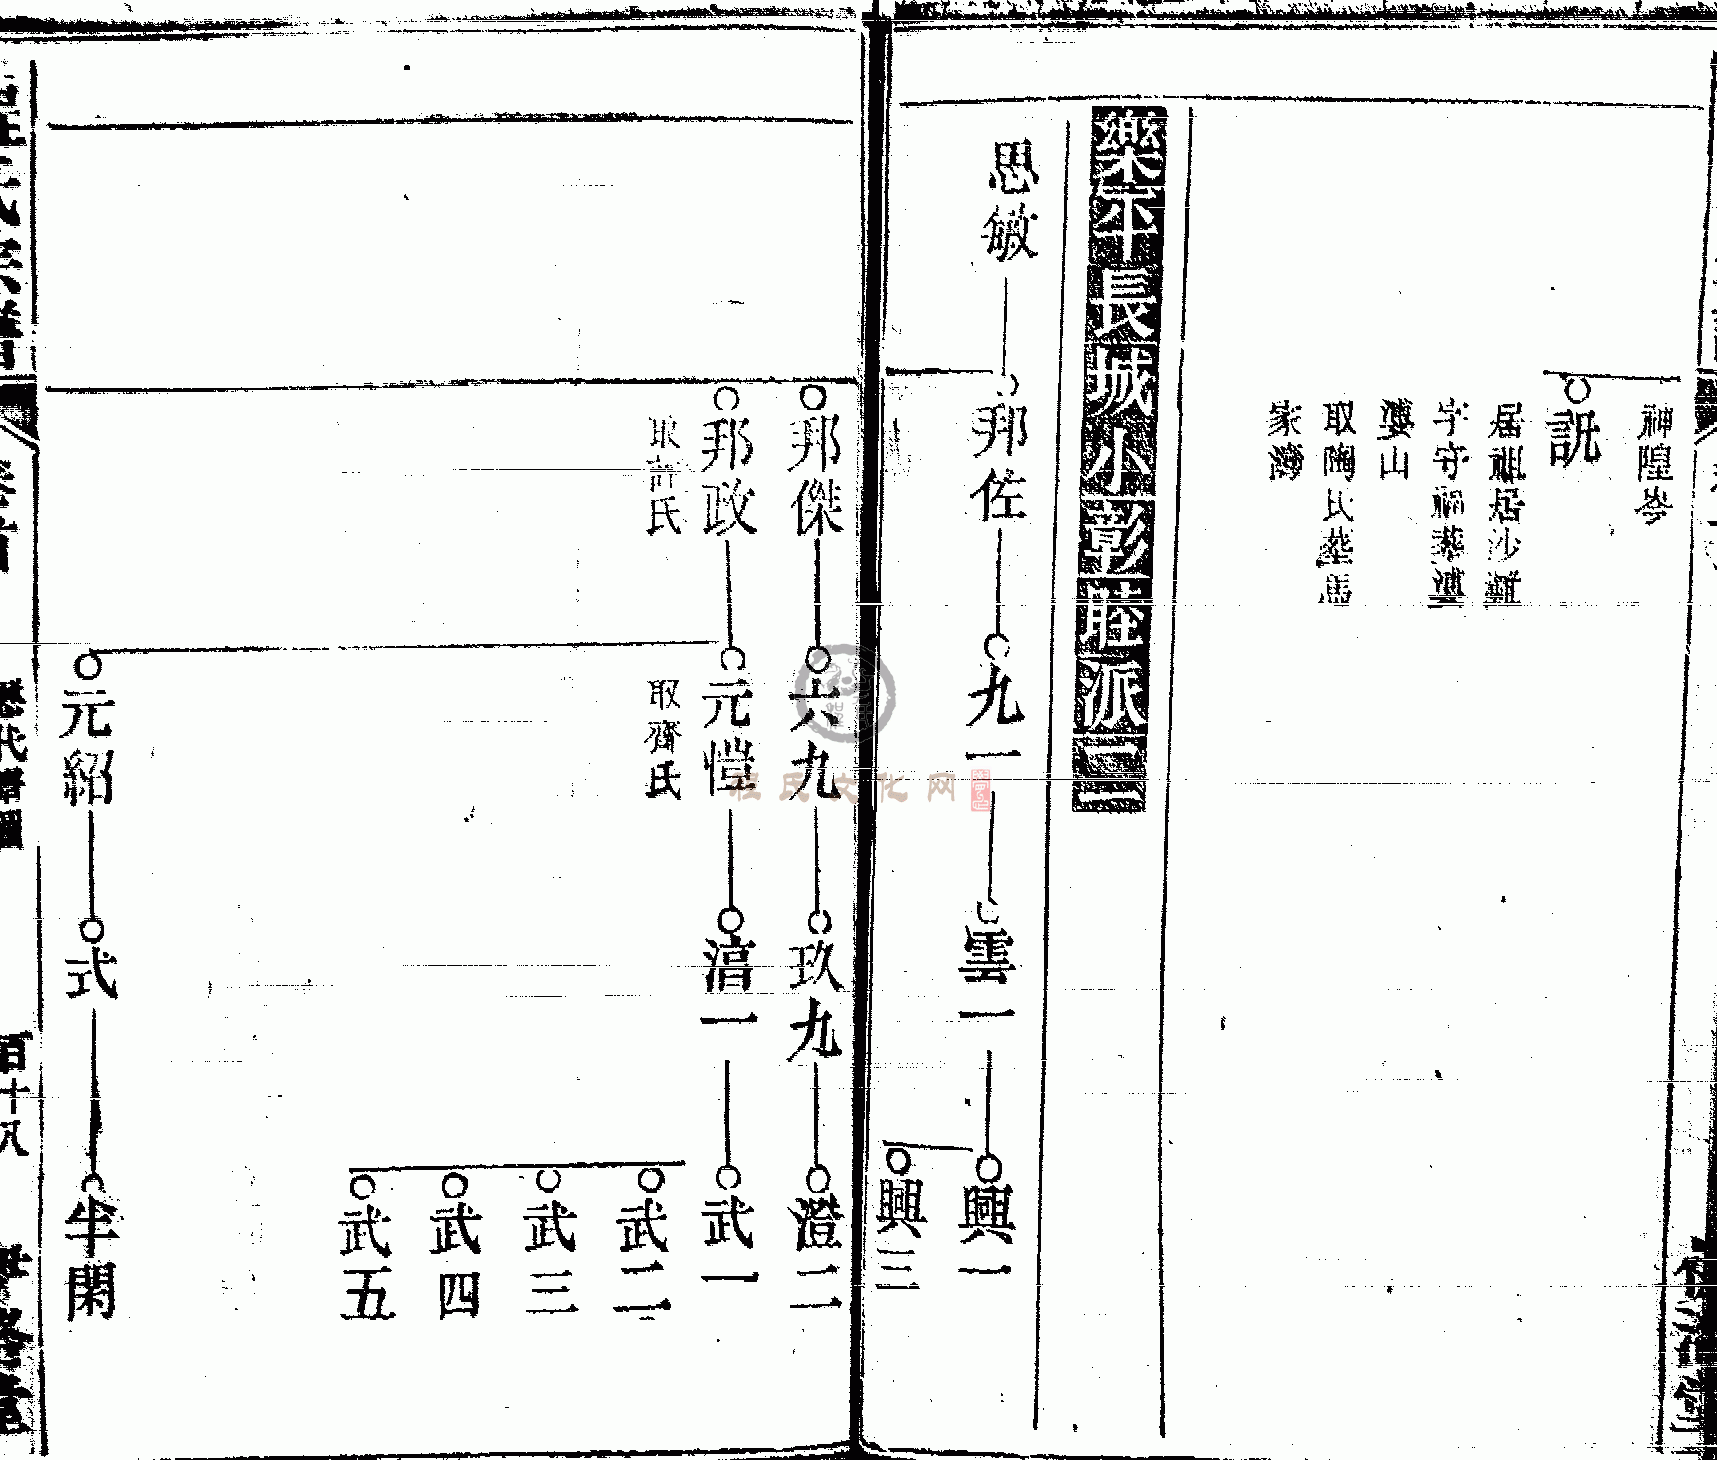 神隍岺
訊
居祖居沙
字守福葬溥
婆山
取陶氏葬馬
家灣
樂平長城小彭畦派三
思敏
邦佐
九一
雲一
興一
興三
邦傑
六九
玖九
澄二
邦政
取許氏
元愷
取齊氏
滈一
武一
武二
武三
武四
武五
元紹
式
半閑
百十八
程氏文化网